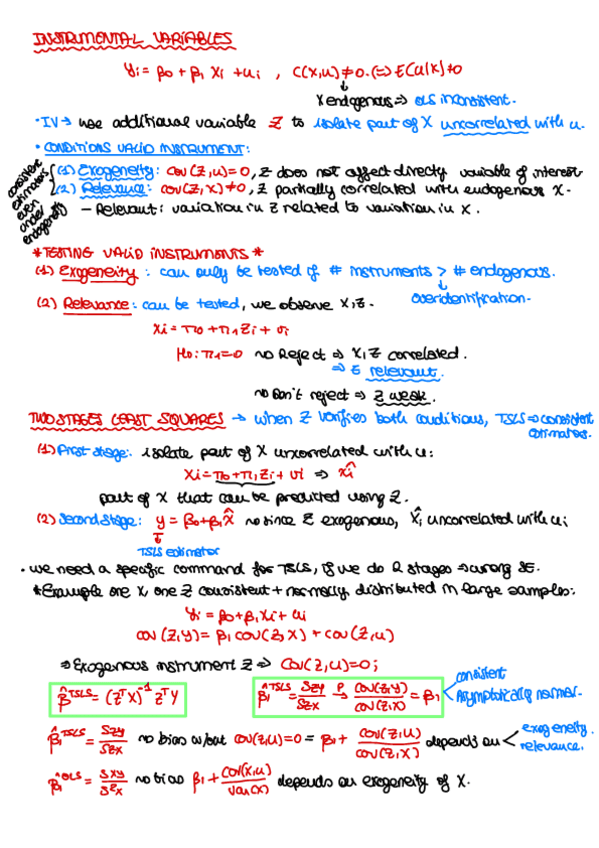 INSTRUMENTAL VARIABLES
yi = β0 + β1 Xi + ui , C(X,u) ≠ 0 (=> E(u|X) ≠ 0
X endogenous => OLS inconsistent.
· IV → use additional variable Z to isolate part of X uncorrelated with u.
· CONDITIONS VALID INSTRUMENT:
consistent estimators even under endogeneity
(1) Exogeneity: cov(Z,u)=0, Z does not affect directly variable of interest
(2) Relevance: cov(Z,X)≠0, Z partially correlated with endogenous X.
– Relevant: variation in Z related to variation in X.
* TESTING VALID INSTRUMENTS *
(1) Exogeneity : can only be tested if # instruments > # endogenous.
overidentification.
(2) Relevance: can be tested, we observe X,Z.
Xi = π0 + π1 Zi + vi
H0: π1=0 → Reject => X,Z correlated.
=> Z relevant.
→ Don't reject => Z weak.
TWO STAGES LEAST SQUARES → when Z verifies both conditions, TSLS => consistent estimates.
(1) First stage: isolate part of X uncorrelated with u:
Xi = π0 + π1 Zi + vi => X̂i
part of X that can be predicted using Z.
(2) Second stage: y = β0 + β1 X̂ → since Z exogenous, X̂i uncorrelated with ui
TSLS estimator
· we need a specific command for TSLS, if we do 2 stages => wrong SE.
* Example one X, one Z consistent + normally distributed in large samples:
yi = β0 + β1 Xi + ui
cov(Z,y) = β1 cov(Z,X) + cov(Z,u)
=> Exogenous instrument Z => Cov(Z,u)=0;
β̂ᵀˢᴸˢ = (ZᵀX)⁻¹ ZᵀY
β̂1ᵀˢᴸˢ = SZY/SZX →p cov(Z,Y)/cov(Z,X) = β1
consistent
Asymptotically normal.
β̂1ᵀˢᴸˢ = SZY/SZX → bias w/out cov(Z,u)=0 = β1 + cov(Z,u)/cov(Z,X) depends on
exogeneity.
relevance.
β̂1ᴼᴸˢ = SXY/S²X → bias β1 + cov(X,u)/var(X) depends on exogeneity of X.